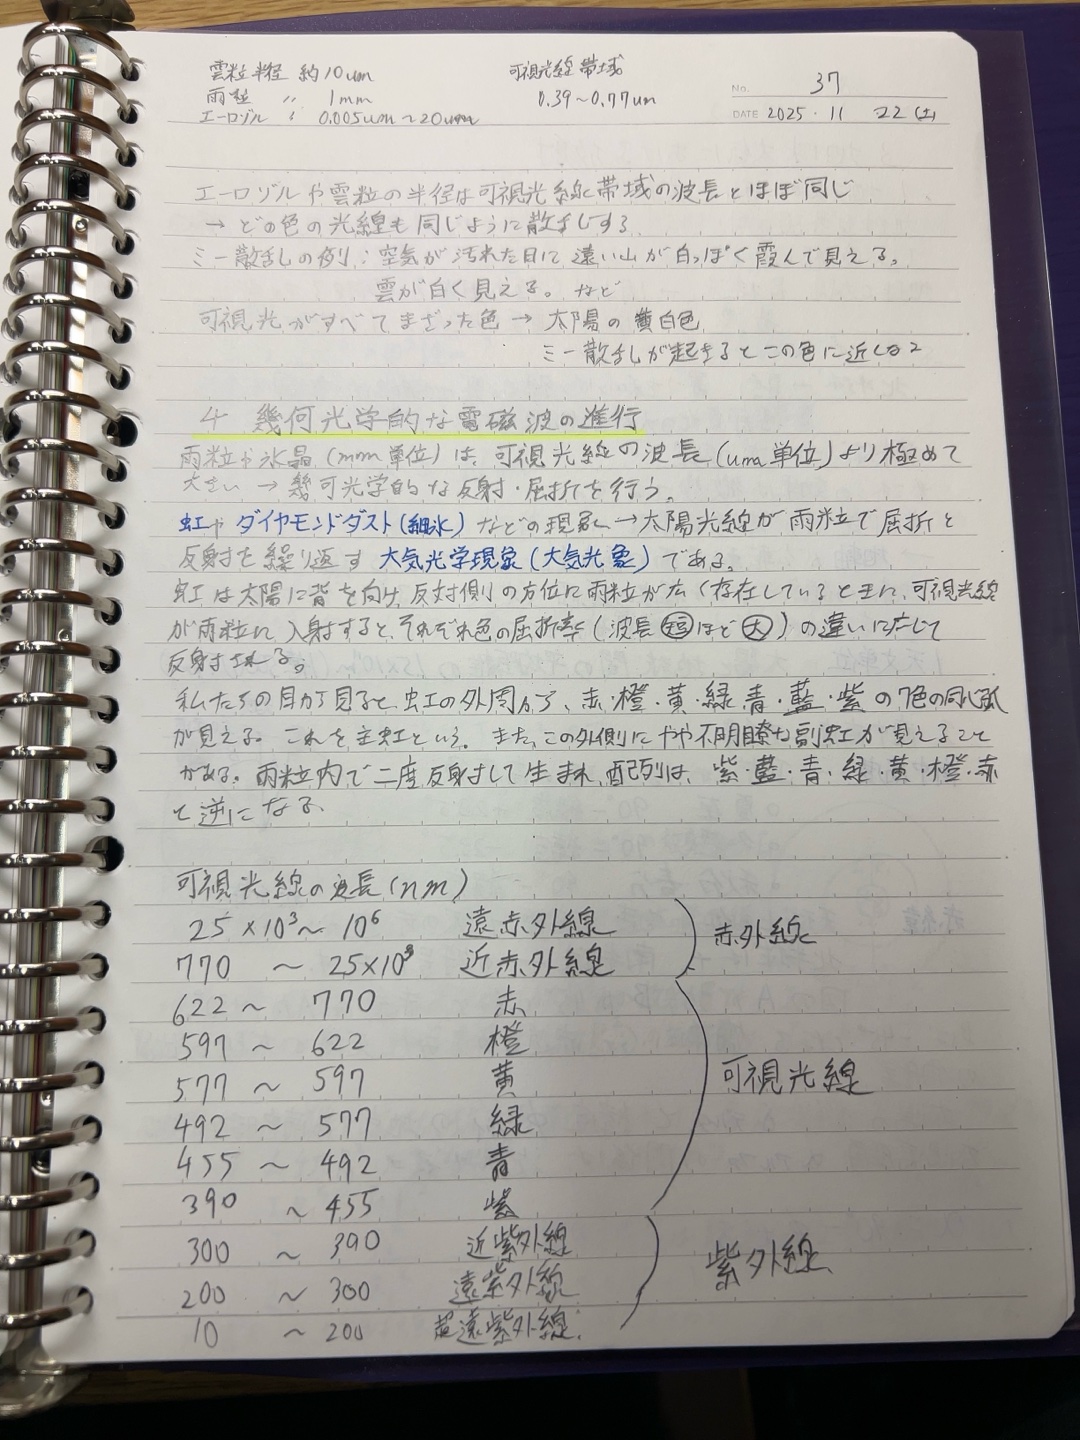 雲粒半径 約10um
雨粒 〃 1mm
エーロゾル 〃 0.005um〜20um
可視光線帯域
0.39〜0.77um
No. 37
DATE 2025 . 11 22(土)
エーロゾルや雲粒の半径は可視光線帯域の波長とほぼ同じ
→ どの色の光線も同じように散乱する
ミー散乱の例：空気が汚れた日に遠い山が白っぽく霞んで見える。
雲が白く見える。など
可視光がすべてまざった色 → 太陽の黄白色
ミー散乱が起きるとこの色に近くなる
4 幾何光学的な電磁波の進行
雨粒や氷晶(mm単位)は、可視光線の波長(um単位)より極めて
大きい → 幾可光学的な反射・屈折を行う。
虹や ダイヤモンドダスト(細氷) などの現象 → 太陽光線が雨粒で屈折と
反射を繰り返す 大気光学現象(大気光象) である。
虹は太陽に背を向け、反対側の方位に雨粒が広く存在しているときに、可視光線
が雨粒に入射すると、それぞれ色の屈折率(波長短ほど大)の違いに応じて
反射される。
私たちの目から見ると、虹の外周から、赤・橙・黄・緑・青・藍・紫の7色の同心弧
が見える。これを主虹という。また、この外側にやや不明瞭な副虹が見えること
がある。雨粒内で二度反射して生まれ、配列は、紫・藍・青・緑・黄・橙・赤
と逆になる。
可視光線の波長(nm)
25×10³〜 10⁶ 遠赤外線
770 〜 25×10³ 近赤外線
赤外線
622 〜 770 赤
597 〜 622 橙
577 〜 597 黄
492 〜 577 緑
455 〜 492 青
390 〜 455 紫
可視光線
300 〜 390 近紫外線
200 〜 300 遠紫外線
10 〜 200 超遠紫外線
紫外線